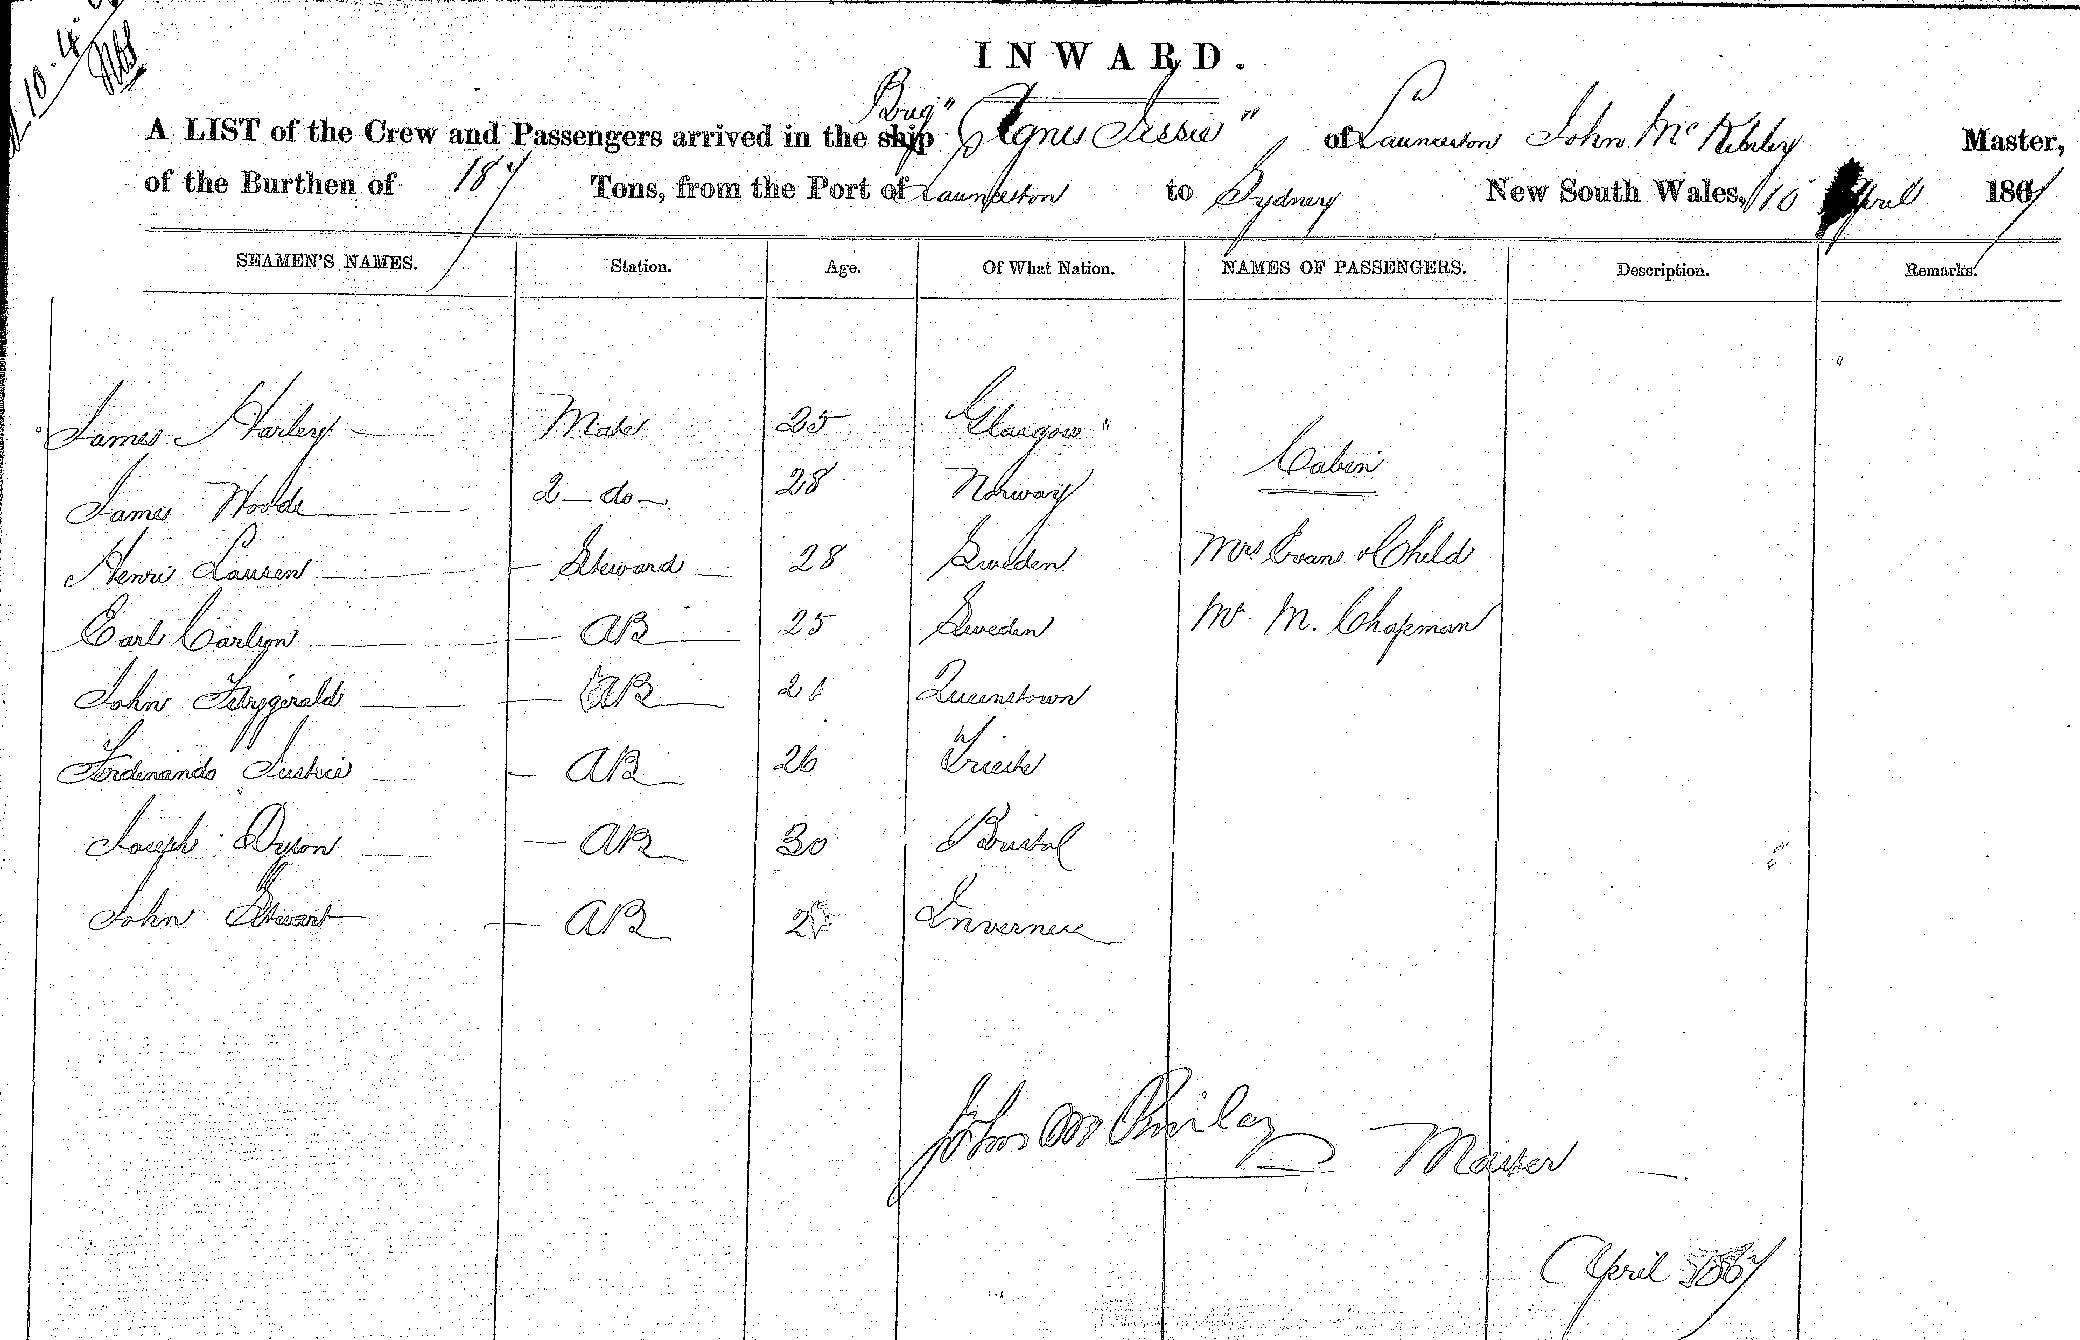 10. 4.
INWARD.
A LIST of the Crew and Passengers arrived in the ship Brig "Agnes Jessie" of Launceston John Mc Master,
of the Burthen of 187 Tons, from the Port of Launceston to Sydney New South Wales, 10 April 1867
SEAMEN'S NAMES. Station. Age. Of What Nation. NAMES OF PASSENGERS. Description. Remarks.
James Harley Mate 25 Glasgow
Cabin
James Woods 2 - do - 28 Norway
Henri Lausen Steward 28 Sweden Mrs Evans & Child
Carl Carlson AB 25 Sweden Mr M. Chapman
John Fitzgerald AB 21 Queenstown
Ferdinando AB 26 Trieste
Joseph Dyson AB 30 Bristol
John Stewart AB Inverness
John Mc Master
April 1867